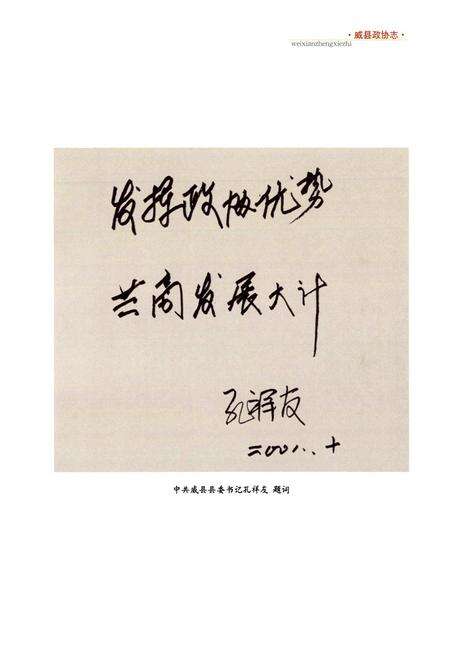 ·威县政协志·
weixianzhengxiezhi
发挥政协优势
共商发展大计
孔祥友
二00八.十
中共威县县委书记孔祥友 题词